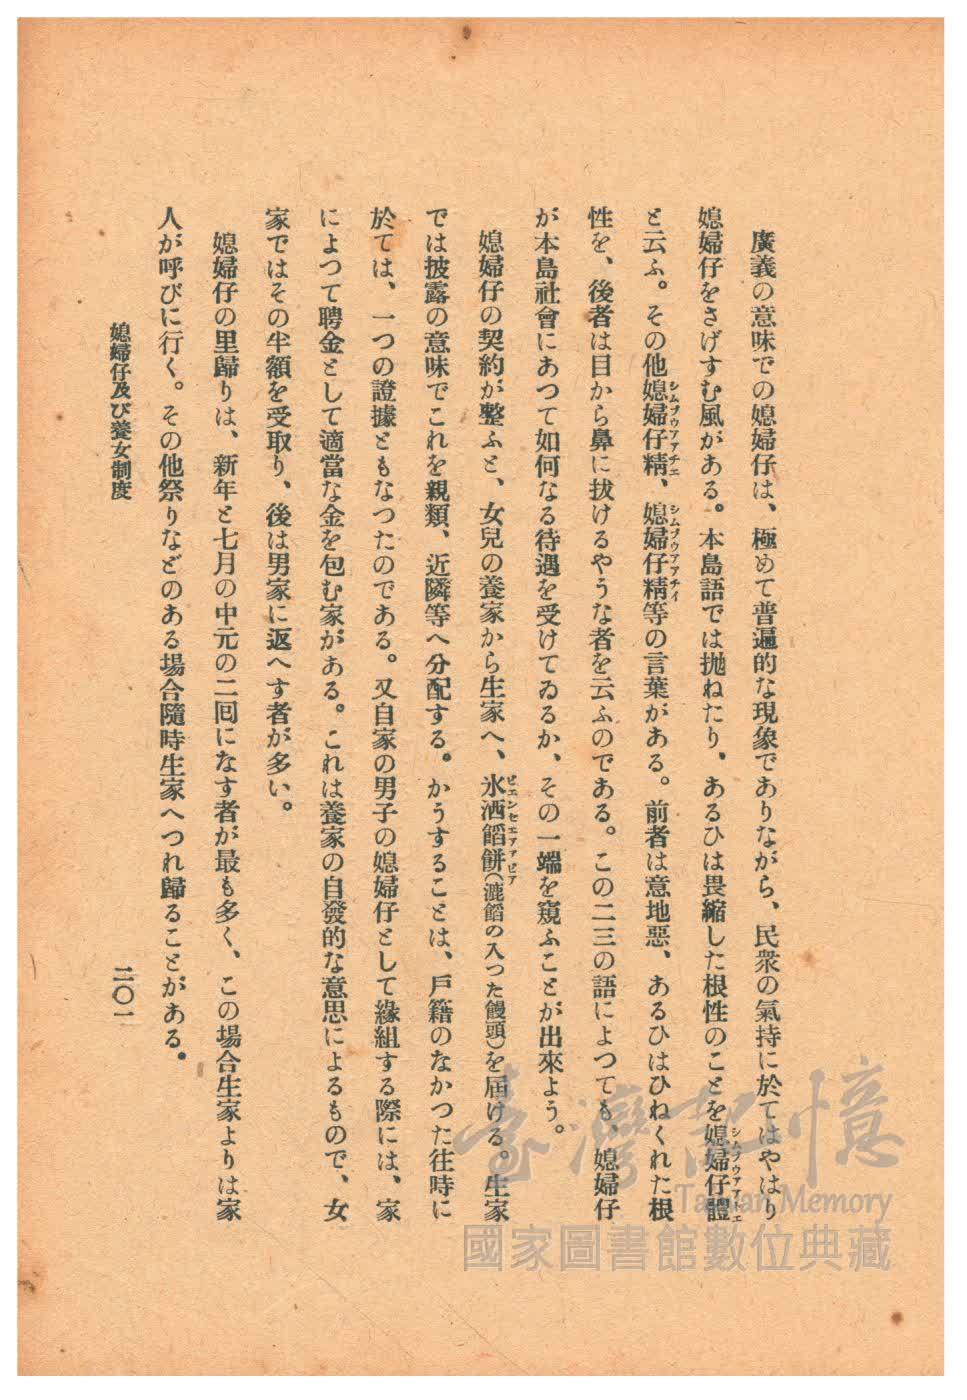 廣義の意味での媳婦仔は、極めて普遍的な現象でありながら、民衆の氣持に於てはやはり
媳婦仔をさげすむ風がある。本島語では拋ねたり、あるひは畏縮した根性のことを媳婦仔體
と云ふ。その他媳婦仔精、媳婦仔精等の言葉がある。前者は意地惡、あるひはひねくれた根
性を、後者は目から鼻に拔けるやうな者を云ふのである。この二三の語によつても、媳婦仔
が本島社會にあつて如何なる待遇を受けてゐるか、その一端を窺ふことが出來よう。
媳婦仔の契約が整ふと、女兒の養家から生家へ、氷洒餡餅(漉餡の入つた饅頭)を届ける。生家
では披露の意味でこれを親類、近隣等へ分配する。かうすることは、戶籍のなかつた往時に
於ては、一つの證據ともなつたのである。又自家の男子の媳婦仔として緣組する際には、家
によつて聘金として適當な金を包む家がある。これは養家の自發的な意思によるもので、女
家ではその半額を受取り、後は男家に返へす者が多い。
媳婦仔の里歸りは、新年と七月の中元の二囘になす者が最も多く、この場合生家よりは家
人が呼びに行く。その他祭りなどのある場合隨時生家へつれ歸ることがある。
媳婦仔及び養女制度
二〇一
臺灣記憶
Taiwan Memory
國家圖書館數位典藏